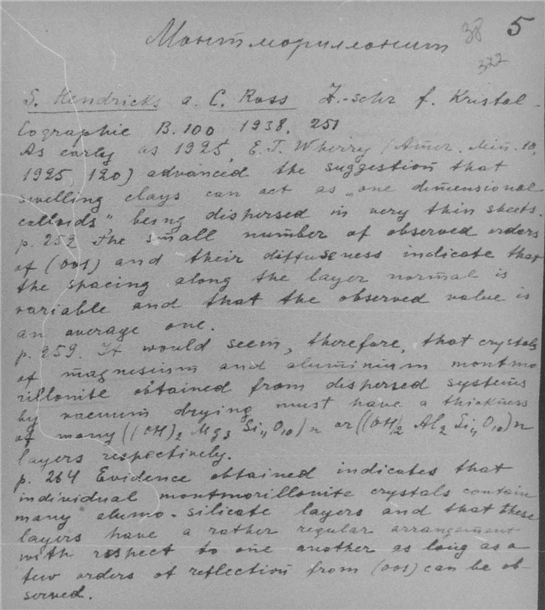 38 5
Монтмориллонит
322
S. Hendricks a. C. Ross Z.-schr f. Kristal-
lographie B.100 1938, 251
As early as 1925, E.T. Wherry (Amer. Min. 10,
1925, 120) advanced the suggestion that
swelling clays can act as „one dimensional
colloids" being dispersed in very thin sheets.
p. 252 The small number of observed orders
of (00s) and their diffuseness indicate that
the spacing along the layer normal is
variable and that the observed value is
an average one.
p. 259. It would seem, therefore, that crystals
of magnesium and aluminium montmo
rillonite obtained from dispersed systems
by vacuum drying must have a thickness
of many ((OH)2 Mg3 Si4 O10)n or ((OH)2 Al2 Si4 O10)n
layers respectively.
p. 264 Evidence obtained indicates that
individual montmorillonite crystals contain
many alumo-silicate layers and that these
layers have a rather regular arrangement
with respect to one another as long as a
few orders of reflection from (00s) can be ob-
served.